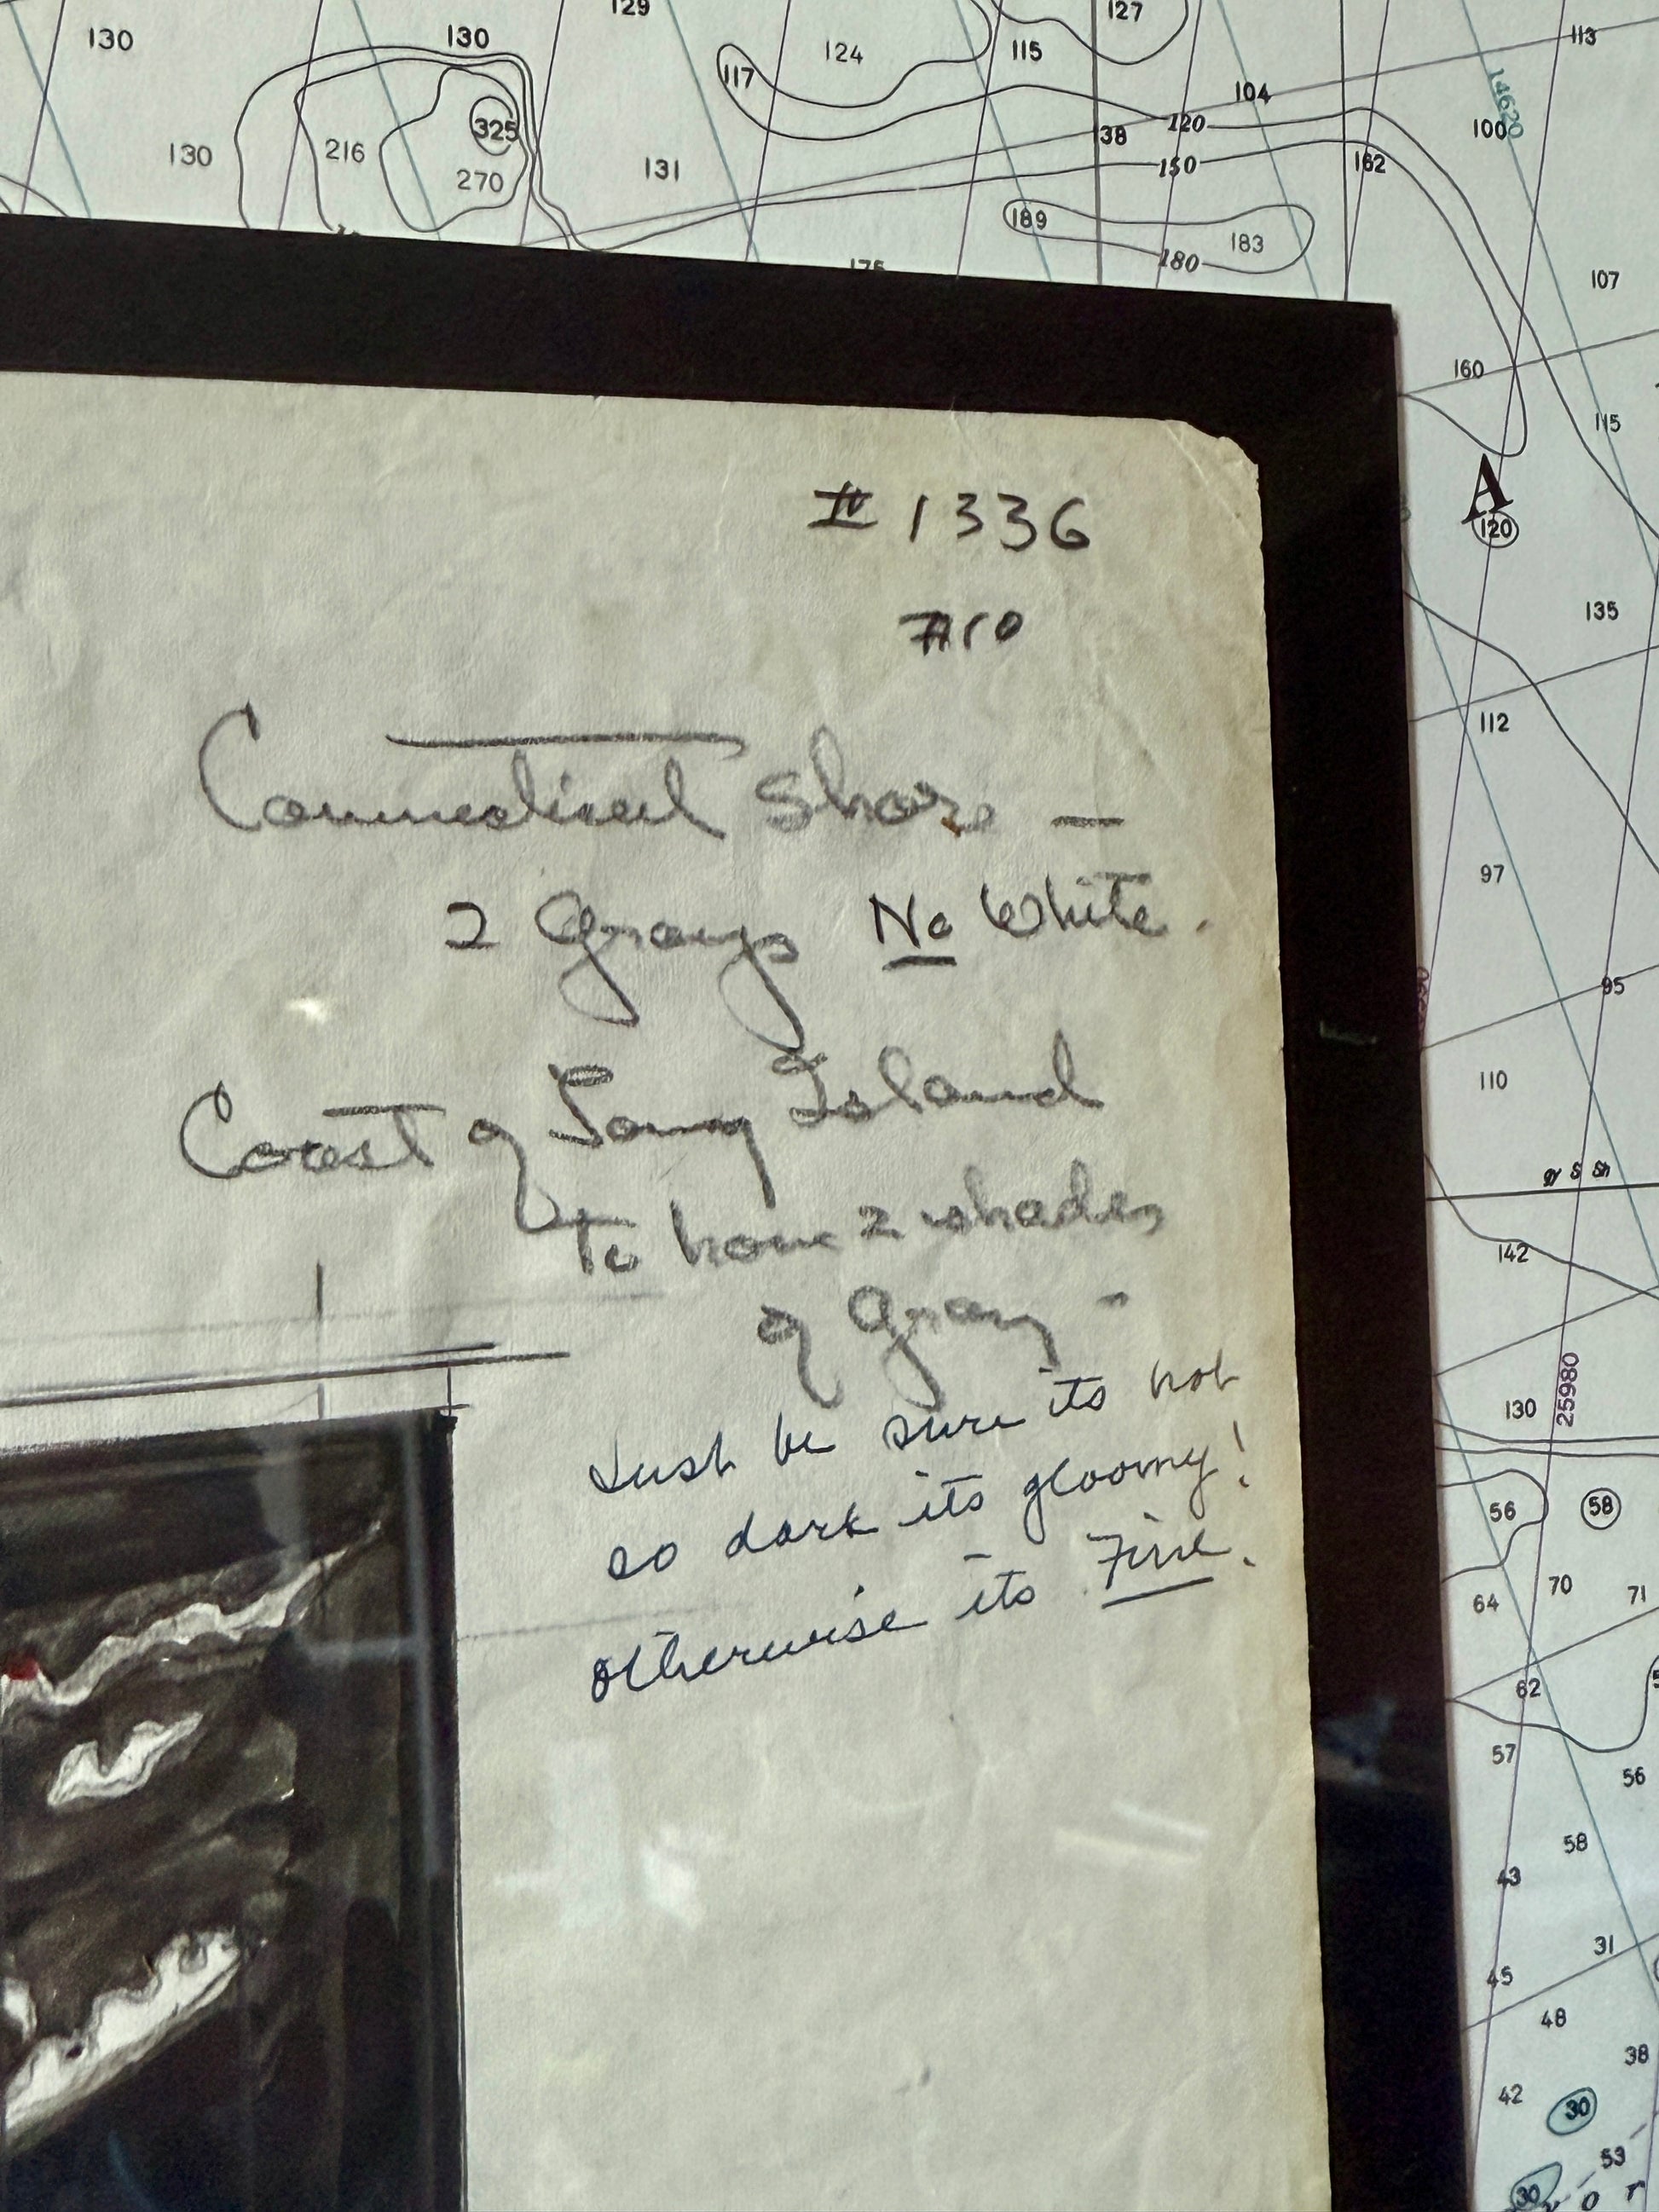 129
127
130
130
124
115
113
117
104
14620
325
38
120
100
130
216
131
150
162
270
189
183
180
175
107
160
115
# 1336
A
120
#10
135
Connecticut Shore —
112
2 Grays No White.
97
95
Coast of Long Island
110
to have 2 shades
142
of Gray -
Just be sure its not
130
25980
so dark its gloomy!
56
58
otherwise its Fine.
64
70
71
62
57
56
58
43
31
45
48
38
42
30
53
30